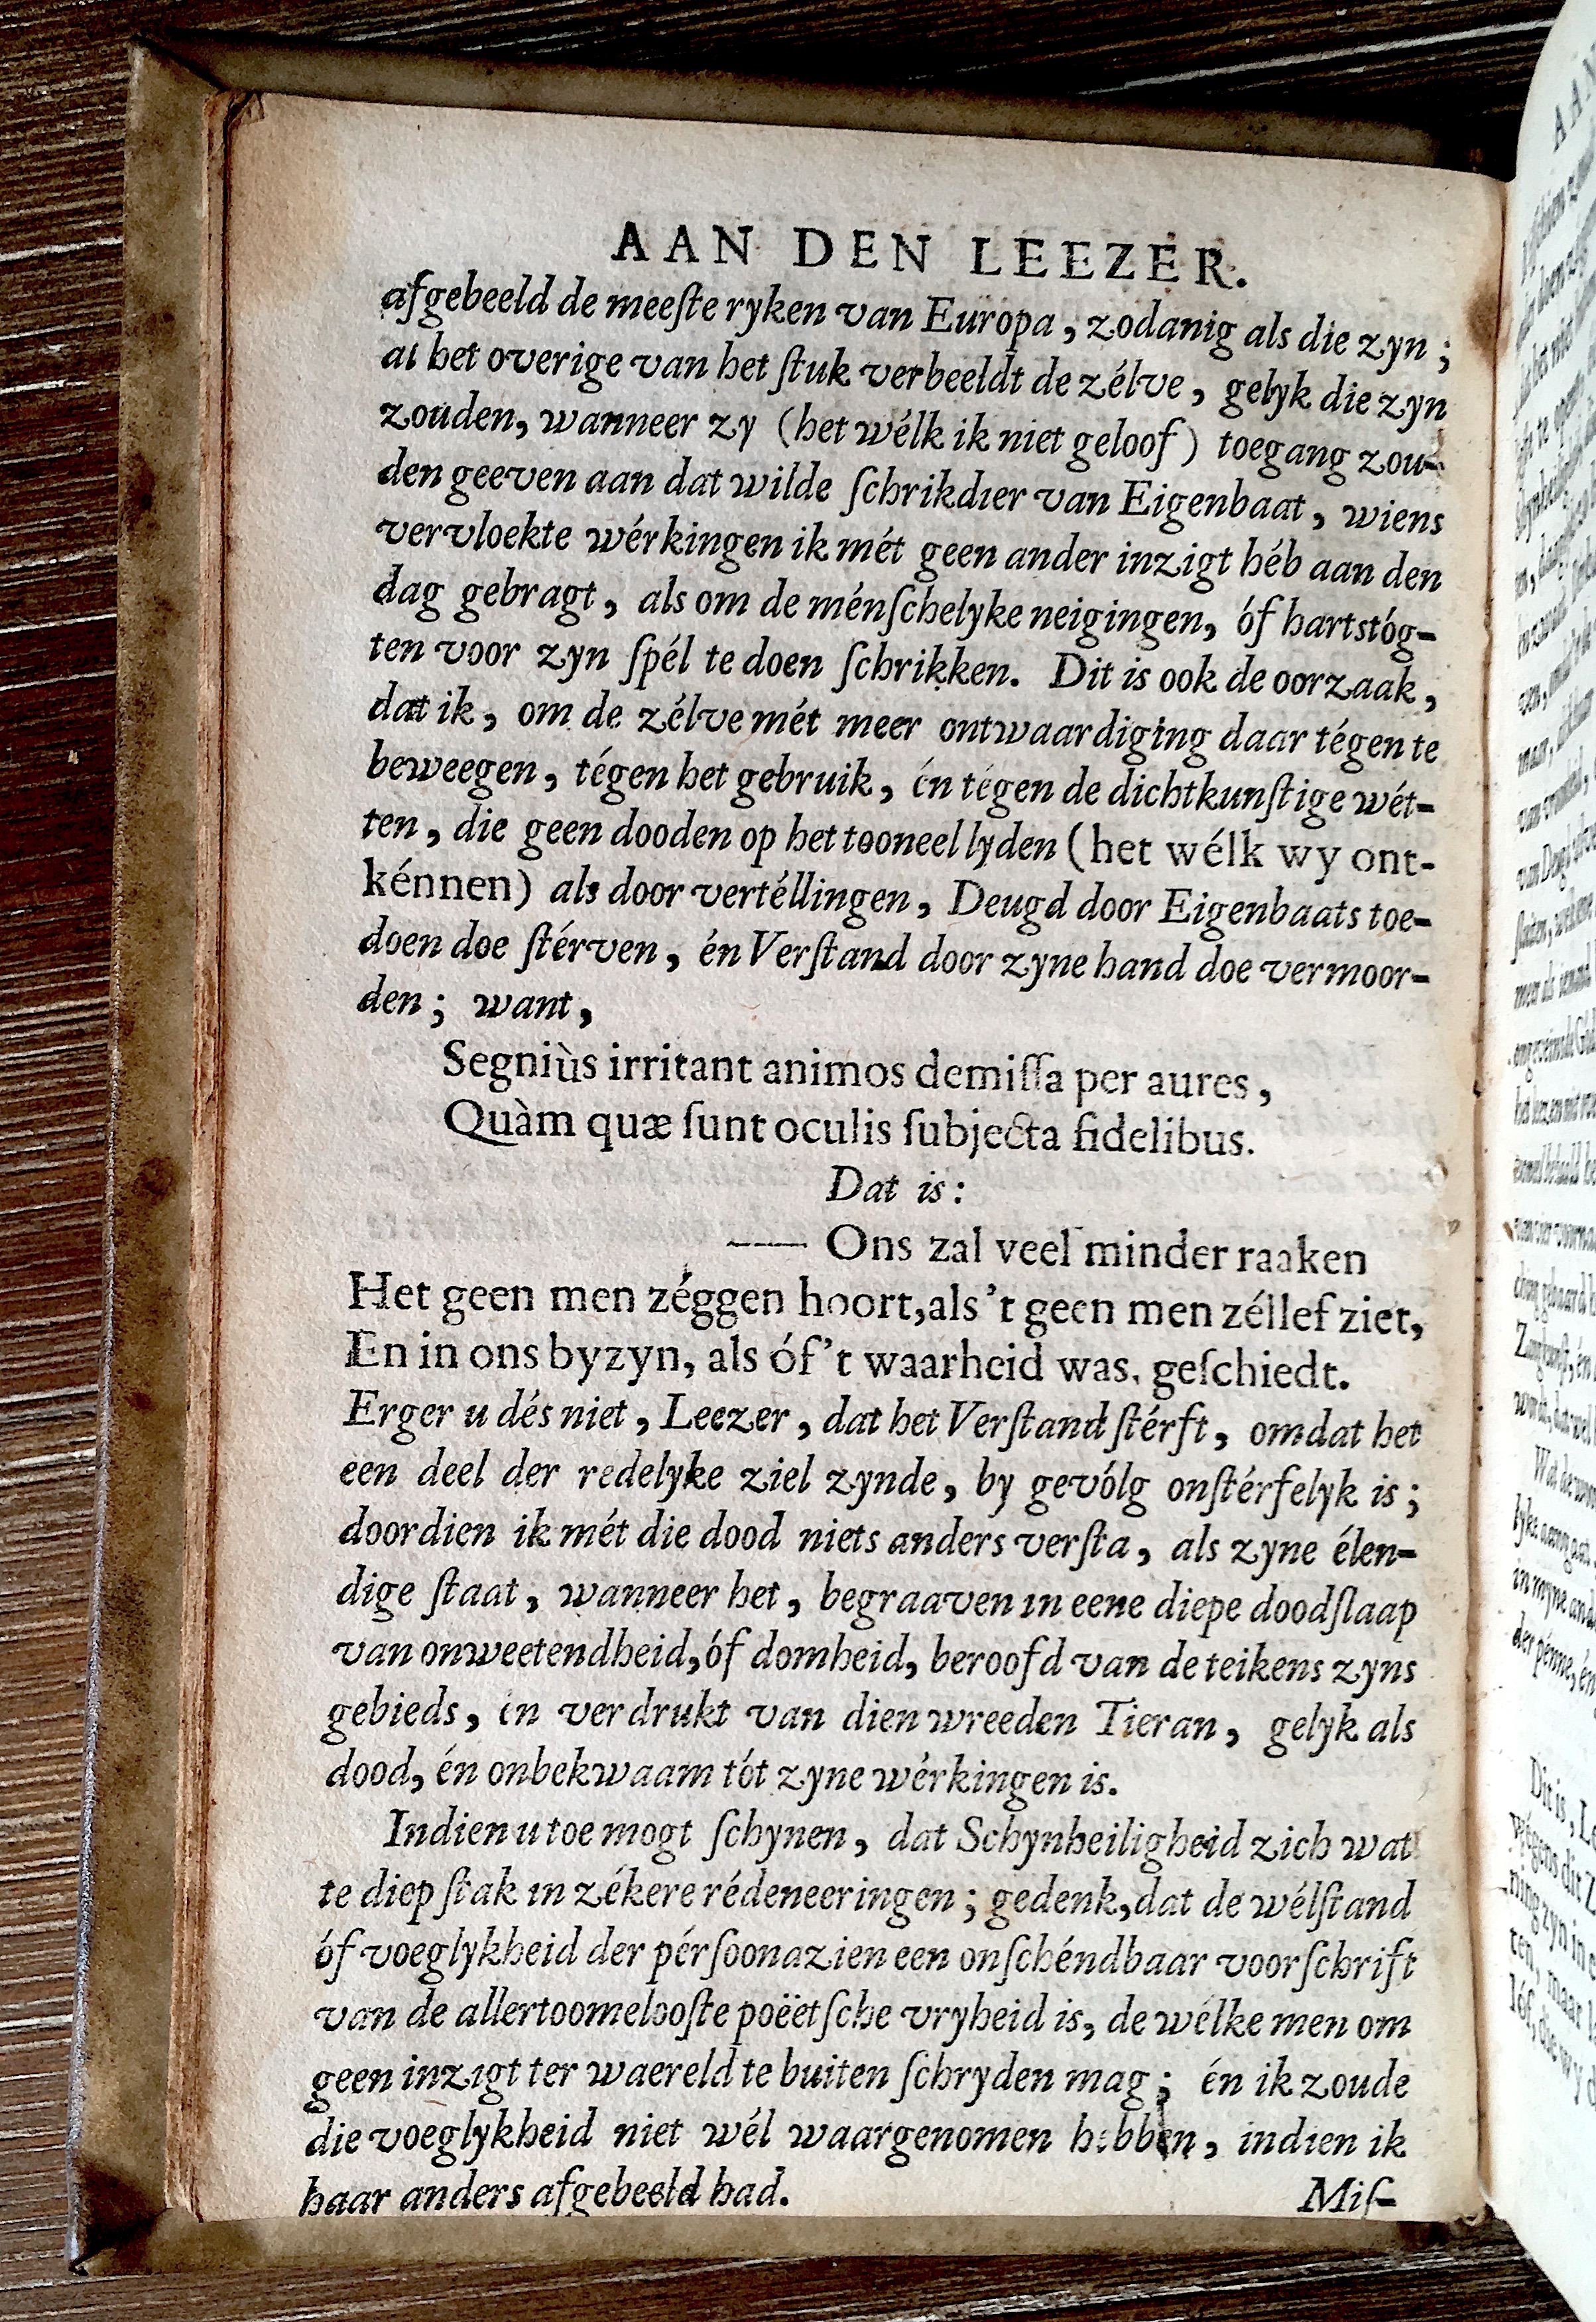 AAN DEN LEEZER.
afgebeeld de meeſte ryken van Europa, zodanig als die zyn;
al het overige van het ſtuk verbeeldt de zélve, gelyk die zyn
zouden, wanneer zy (het wélk ik niet geloof) toegang zou-
den geeven aan dat wilde ſchrikdier van Eigenbaat, wiens
vervloekte wérkingen ik mét geen ander inzigt héb aan den
dag gebragt, als om de ménſchelyke neigingen, óf hartstóg-
ten voor zyn ſpél te doen ſchrikken. Dit is ook de oorzaak,
dat ik, om de zélve mét meer ontwaardiging daar tégen te
beweegen, tégen het gebruik, én tégen de dichtkunſtige wét-
ten, die geen dooden op het tooneel lyden (het wélk wy ont-
kénnen) als door vertéllingen, Deugd door Eigenbaats toe-
doen doe ſtérven, én Verſtand door zyne hand doe vermoor-
den; want,
Segniùs irritant animos demiſſa per aures,
Quàm quæ ſunt oculis ſubjecta fidelibus.
Dat is:
—— Ons zal veel minder raaken
Het geen men zéggen hoort, als 't geen men zéllef ziet,
En in ons byzyn, als óf 't waarheid was, geſchiedt.
Erger u dés niet, Leezer, dat het Verſtand ſtérft, omdat het
een deel der redelyke ziel zynde, by gevólg onſtérfelyk is;
doordien ik mét die dood niets anders verſta, als zyne élen-
dige ſtaat, wanneer het, begraaven in eene diepe doodſlaap
van onweetendheid, óf domheid, beroofd van de teikens zyns
gebieds, én verdrukt van dien wreeden Tieran, gelyk als
dood, én onbekwaam tót zyne wérkingen is.
Indien u toe mogt ſchynen, dat Schynheiligheid zich wat
te diep ſtak in zékere rédeneeringen; gedenk, dat de wélſtand
óf voeglykheid der pérſoonazien een onſchéndbaar voorſchrift
van de allertoomelooſte poëetſche vryheid is, de wélke men om
geen inzigt ter waereld te buiten ſchryden mag; én ik zoude
die voeglykheid niet wél waargenomen hebben, indien ik
haar anders afgebeeld had.
Miſ-